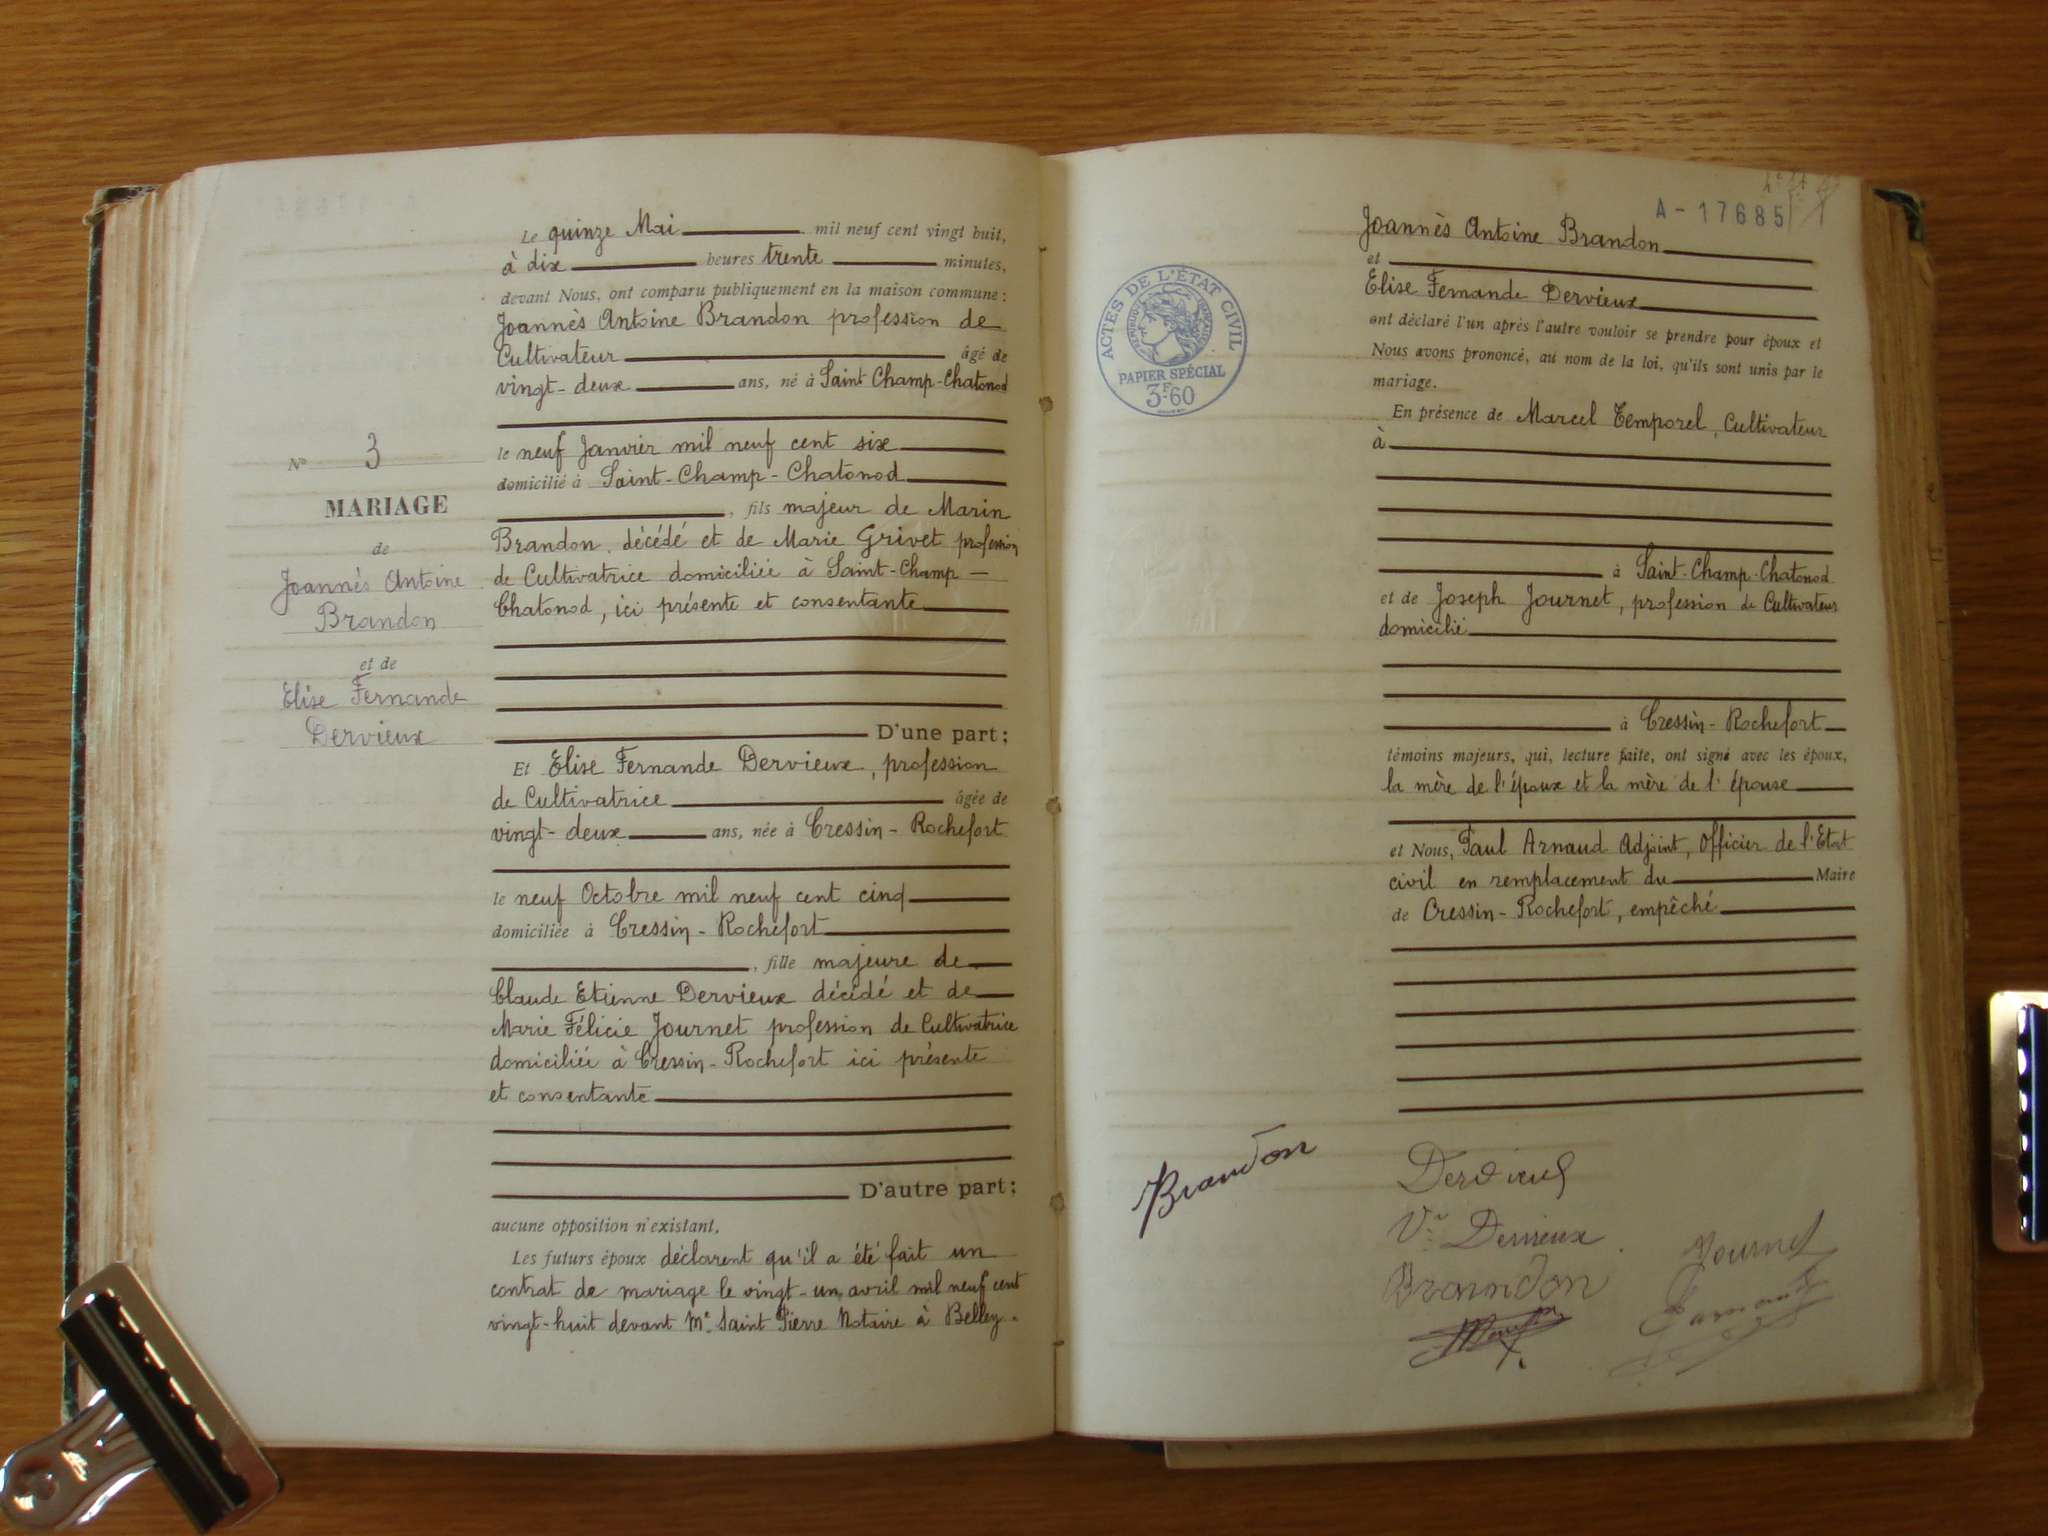 N° 3
MARIAGE
de
Joannès Antoine
Brandon
et de
Elise Fernande
Dervieux
Le quinze Mai mil neuf cent vingt huit,
à dix heures trente minutes,
devant Nous, ont comparu publiquement en la maison commune :
Joannès Antoine Brandon profession de
Cultivateur âgé de
vingt-deux ans, né à Saint Champ-Chatonod
le neuf Janvier mil neuf cent six
domicilié à Saint-Champ-Chatonod
, fils majeur de Marin
Brandon, décédé et de Marie Grivet profession
de Cultivatrice domiciliée à Saint-Champ-
Chatonod, ici présente et consentante
D'une part ;
Et Elise Fernande Dervieux, profession
de Cultivatrice âgée de
vingt-deux ans, née à Cressin-Rochefort
le neuf Octobre mil neuf cent cinq
domiciliée à Cressin-Rochefort
, fille majeure de
Claude Etienne Dervieux décédé et de
Marie Félicie Journet profession de Cultivatrice
domiciliée à Cressin-Rochefort ici présente
et consentante
D'autre part ;
aucune opposition n'existant,
Les futurs époux déclarent qu'il a été fait un
contrat de mariage le vingt-un avril mil neuf cent
vingt-huit devant Me Saint Pierre Notaire à Belley.
A-17685
ACTES DE L'ÉTAT CIVIL
RÉPUBLIQUE FRANÇAISE
PAPIER SPÉCIAL
3F60
Joannès Antoine Brandon
et
Elise Fernande Dervieux
ont déclaré l'un après l'autre vouloir se prendre pour époux et
Nous avons prononcé, au nom de la loi, qu'ils sont unis par le
mariage.
En présence de Marcel Temporel, Cultivateur
à
à Saint-Champ-Chatonod
et de Joseph Journet, profession de Cultivateur
domicilié
à Cressin-Rochefort
témoins majeurs, qui, lecture faite, ont signé avec les époux,
la mère de l'époux et la mère de l'épouse
et Nous, Paul Arnaud Adjoint, Officier de l'Etat
civil en remplacement du Maire
de Cressin-Rochefort, empêché
Brandon
Dervieux
Ve Dervieux
Journet
Brandon